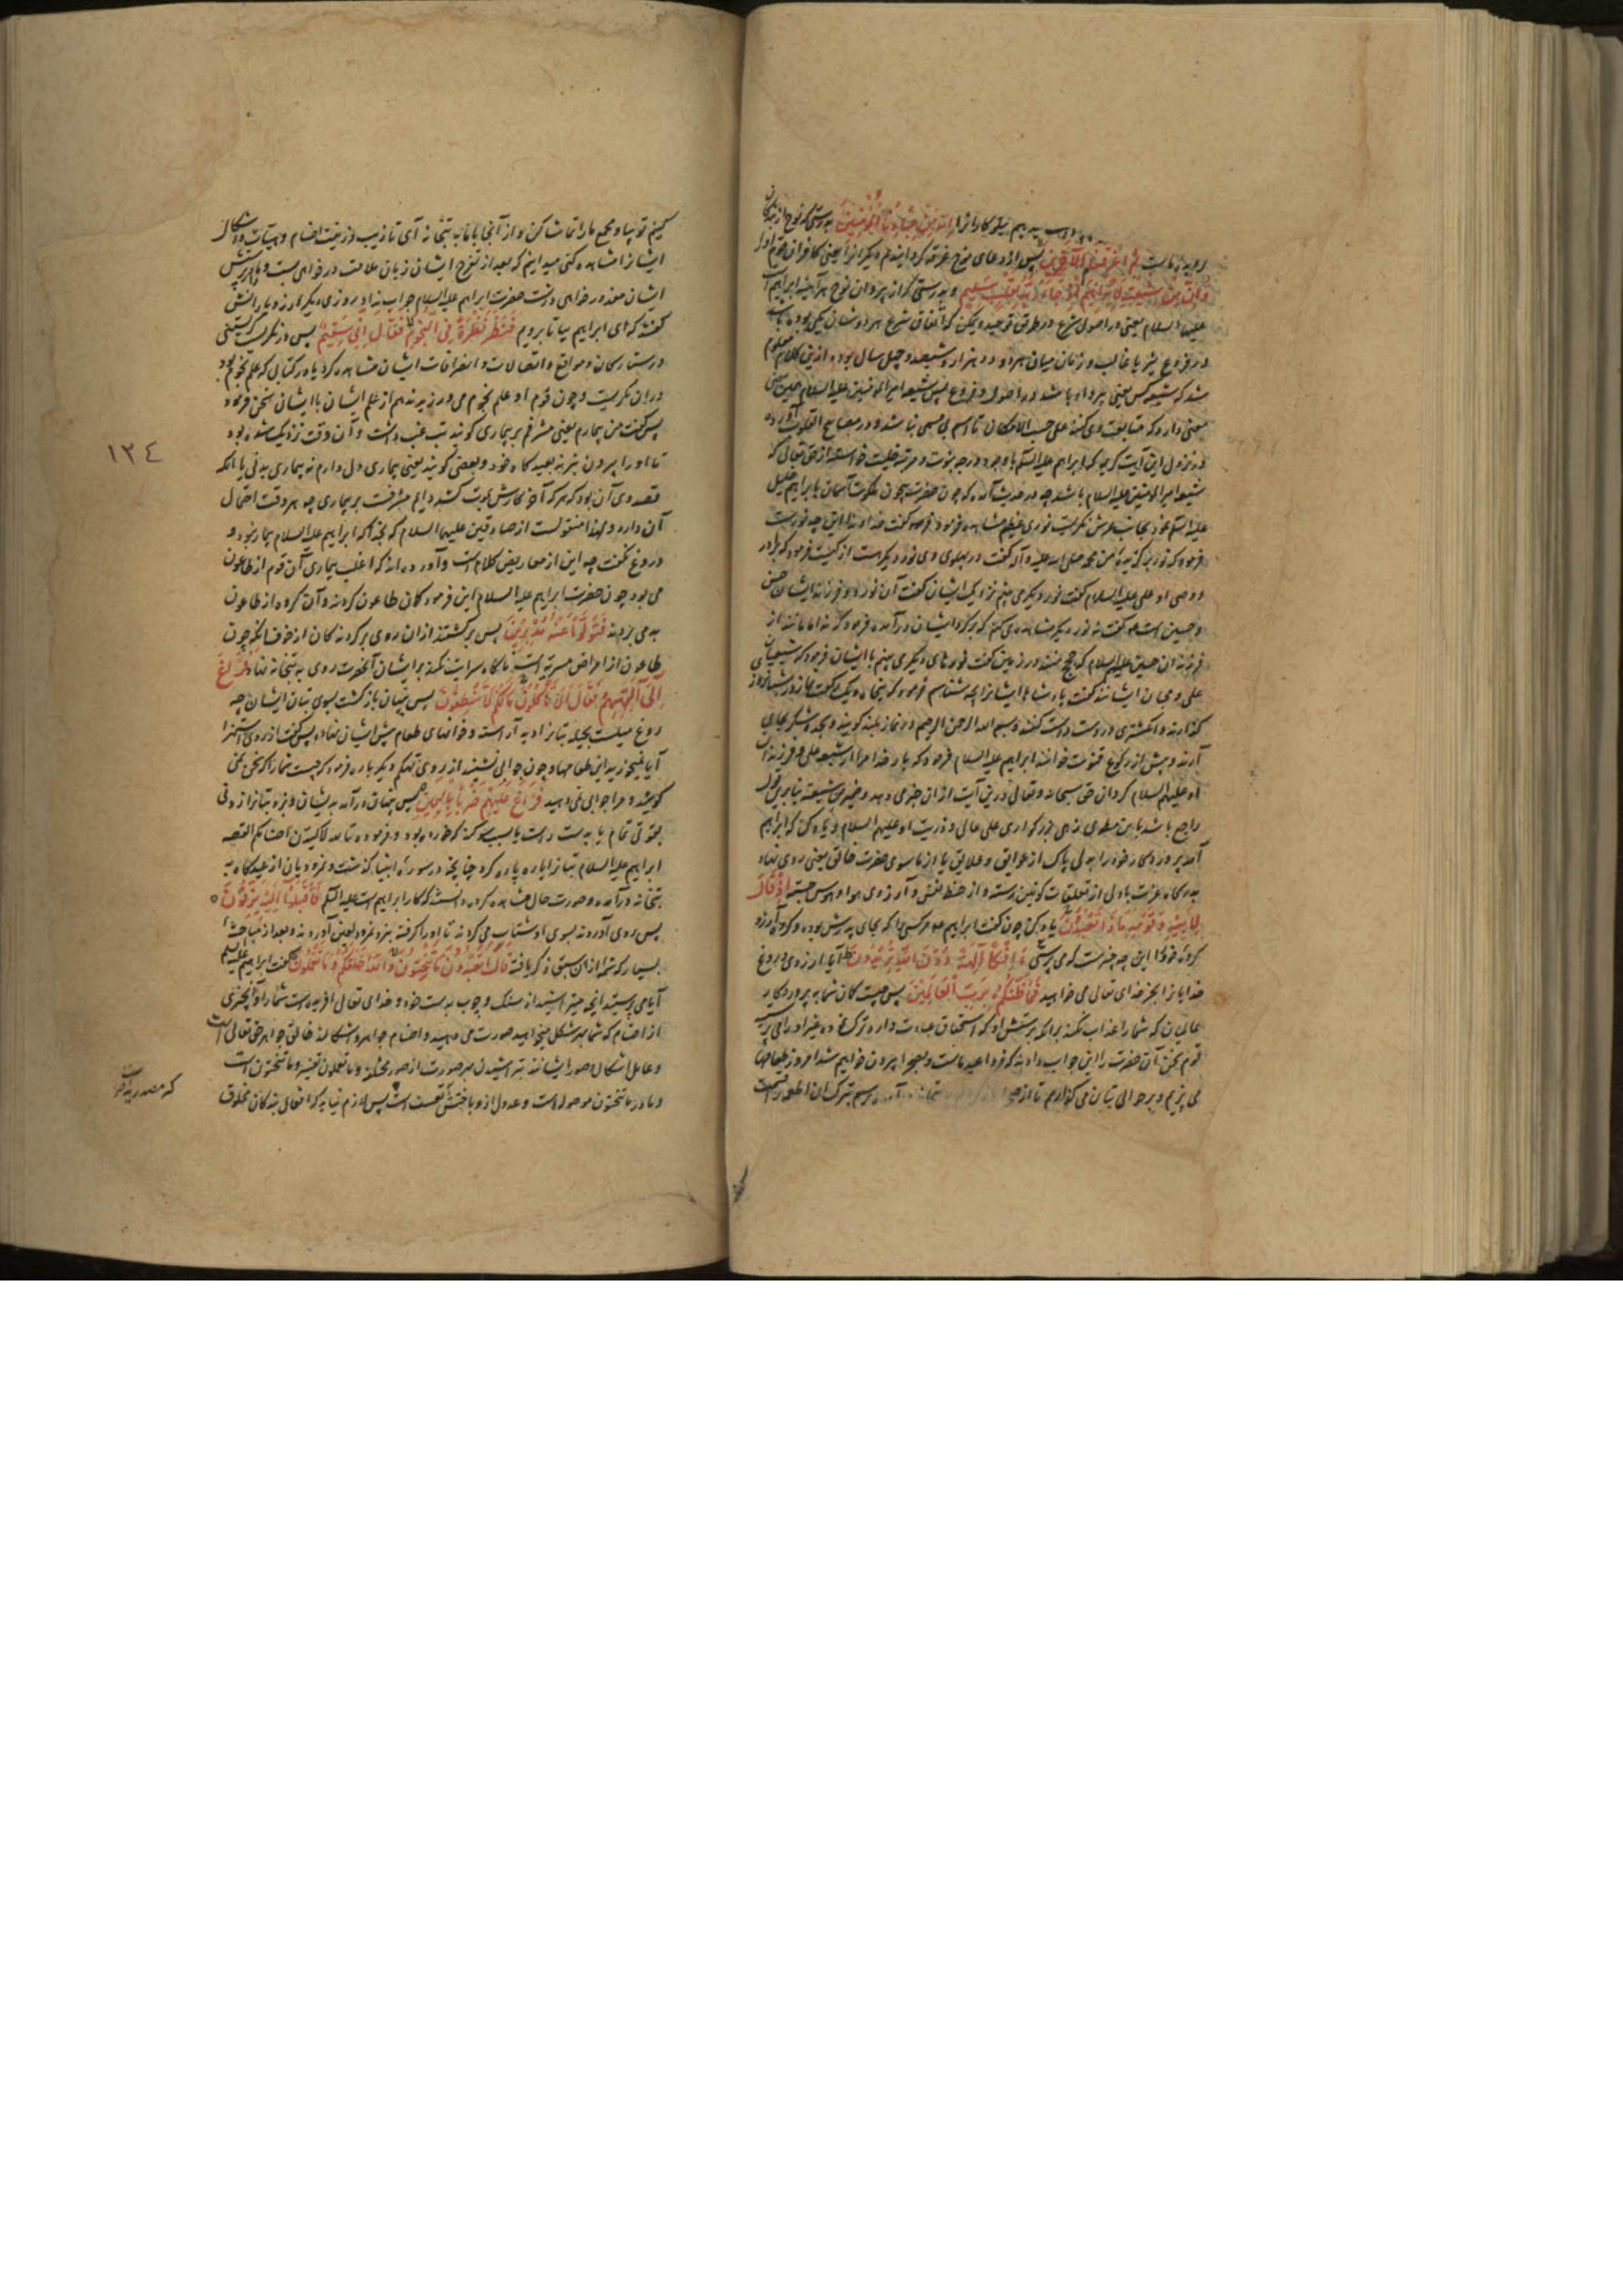 میدهیم نیکو کارانرا إِنَّهُ مِنْ عِبَادِنَا الْمُؤْمِنِينَ بدرستی که نوح از بندکان
ثُمَّ أَغْرَقْنَا الْآخَرِينَ پس از دعای نوح غرقه کردانیدیم دیکرانرا یعنی کافران قوم اورا
وَإِنَّ مِنْ شِيعَتِهِ لَإِبْرَاهِيمَ إِذْ جَاءَ رَبَّهُ بِقَلْبٍ سَلِيمٍ و بدرستی که از پیروان نوح هرآینه ابراهیم است
علیهما السلام یعنی در اصول شرع و در طریق توحید و یمکن که اتفاق شرع هر دوشان یکی بوده باشد
در فروع نیز یا غالب و زمان میان هر دو دو هزار و ششصد و چهل سال بوده ازین کلام معلوم
شد که شیعه کس یعنی پیرو او باشد در اصول و فروع پس شیعه امیر المؤمنین علیه السلام همین
معنی دارد که متابعت وی کنند علی حسب الامکان تا اسم بی مسمی نباشد و در مصابیح القلوب آورده
در نزول این آیت کریمه که ابراهیم علیه السلام با وجود درجه نبوت و مرتبه خلت خواست از حق تعالی که
شیعه امیر المؤمنین علیه السلام باشد چه در حدیث آمده که چون حضرت بیچون ملکوت آسمان بابراهیم خلیل
علیه السلام نمود بجانب عرش نکریست نوری عظیم مشاهده فرمود فرمود کفت خداوندا این چه نوریست
فرمود که نور برکزیده من محمد صلی الله علیه و آله کفت در پهلوی وی نور دیکر است از کیست فرمود که برادر
و وصی او علی علیه السلام کفت نور دیکر می بینم نزدیک ایشان کفت آن نور دو فرزند ایشان حسن
و حسین است کفت نه نور دیکر مشاهده می کنم که بر کرد ایشان در آمده فرمود که نه امامانند از
فرزندان حسین علیه السلام که حجج منند در زمین کفت نورهای دیکر می بینم با ایشان فرمود که شیعیان
علی و محبان ایشانند کفت پادشاها ایشانرا بچه شناسم فرمود که پنجاه و یک رکعت نماز در شبانروز
کذارند و انکشتری در دست راست کنند و بسم الله الرحمن الرحیم در نماز بلند کویند و سجده شکر بجای
آرند و پیش از رکوع قنوت خوانند ابراهیم علیه السلام فرمود که بار خدایا مرا از شیعه علی و فرزندان
او علیهم السلام کردان حق سبحانه و تعالی درین آیت از ان خبر می دهد و ضمیر من شیعته بنابرین قول
راجع باشد باین مطوی زهی بزرکواری علی عالی و ذریت او علیهم السلام و یاد کن که ابراهیم
آمد پروردکار خود را بدلی پاک از عوایق و علایق یا از ما سوی حضرت خالق یعنی روی نهاد
بدرکاه عزت با دلی از تعلقات کونین رسته و از حظ نفس و آرزوی هوا و هوس جسته إِذْ قَالَ
لِأَبِيهِ وَقَوْمِهِ مَاذَا تَعْبُدُونَ یاد کن چون کفت ابراهیم مر کسی را که بجای پدرش بوده و کروه آزر و
کروه خود را این چه چیزست که می پرستی أَئِفْكًا آلِهَةً دُونَ اللَّهِ تُرِيدُونَ آیا از روی دروغ
خدایانرا بجز خدای تعالی می خواهید فَمَا ظَنُّكُمْ بِرَبِّ الْعَالَمِينَ پس چیست کمان شما به پروردکار
عالمیان که شما را عذاب نکند برانکه پرستش او که استحقاق عبادت دارد ترک نموده غیر او را می پرستید
قوم بعد از سخن آن حضرت را این جواب دادند که فردا عید ماست و بصحرا بیرون خواهیم شد امروز طعامها
می پزیم و بر حوالی بتان می کذاریم تا از صحرا آمده رسم تبرک ان اطعمه را قسمت
کنیم تو بیا و مجمع ما را تماشا کن و از آنجا با ما به بتخانه آی تا زیب و زینت اصنام و هیئات و اشکال
ایشانرا مشاهده کنی میدانیم که بعد از تفرج ایشان زبان ملامت در خواهی بست و ما را در پرستش
ایشان معذور خواهی داشت حضرت ابراهیم علیه السلام جواب نداد و روز دیکر آزر و یارانش
کفتند که ای ابراهیم بیا تا برویم فَنَظَرَ نَظْرَةً فِي النُّجُومِ فَقَالَ إِنِّي سَقِيمٌ پس در نکریست نکریستنی
در ستارکان و مواقع و اتصالات و انصرافات ایشان مشاهده کرد یا در کتابی که علم نجوم بود
در ان نکریست و چون قوم او علم نجوم می ورزیدند هم از علم ایشان با ایشان سخن فرمود
پس کفت من بیمارم یعنی مشرفم بر بیماری کویند تب غب داشت و آن وقت نزدیک شده بود
تا او را بیرون نبرند بعید کاه خود و بعضی کویند یعنی بیماری دل دارم نه بیماری بدنی یا انکه
قصد وی آن بود که هر که آخر کارش موت کشد دایم مشرفست بر بیماری چه هر وقت احتمال
آن دارد و لهذا منقولست از صادقین علیهما السلام که بخدا که ابراهیم علیه السلام بیمار نبود و
دروغ نکفت چه این از معاریض کلام است و آورده اند که اغلب بیماری آن قوم از طاعون
می بود چون حضرت ابراهیم علیه السلام این فرمود کمان طاعون کردند و آن کروه از طاعون
بدمی بردند فَتَوَلَّوْا عَنْهُ مُدْبِرِينَ پس برکشتند از ان روی برکردندکان از خوف انکه چون
طاعون از امراض مسریه است ناکاه سرایت نکند بر ایشان آنحضرت روی به بتخانه نهاد فَرَاغَ
إِلَى آلِهَتِهِمْ فَقَالَ أَلَا تَأْكُلُونَ مَا لَكُمْ لَا تَنْطِقُونَ پس پنهان بازکشت بسوی بتان ایشان چه
روغ میلست بحیله بتانرا دید آراسته و خوانهای طعام پیش ایشان نهاده پس کفت از روی استهزا
آیا نمیخورید این طعامها و چون جوابی نشنید از روی تهکم دیکر باره فرمود که چیست شما را که سخن نمی
کویید و مرا جوابی نمی دهید فَرَاغَ عَلَيْهِمْ ضَرْبًا بِالْيَمِينِ پس پنهان در آمد بدیشان و بزد بتانرا زدنی
بقوتی تمام یا بدست راست یا بسبب سوکند که خورده بود و فرموده تالله لاکیدن اصنامکم القصه
ابراهیم علیه السلام بتانرا پاره پاره کرد چنانچه در سوره انبیا کذشت و نمرودیان از عیدکاه به
بتخانه درآمده و صورت حال مشاهده کرده دانستند که کار ابراهیم است علیه السلم فَأَقْبَلُوا إِلَيْهِ يَزِفُّونَ
پس روی آوردند بسوی او شتاب می کردند تا او را کرفته بنزد نمرود لعین آوردند و بعد از مباحثه
بسیار که شمه از ان سبق ذکر یافته قَالَ أَتَعْبُدُونَ مَا تَنْحِتُونَ وَاللَّهُ خَلَقَكُمْ وَمَا تَعْمَلُونَ کفت ابراهیم علیه السلم
آیا می پرستید انچه میتراشید از سنک و چوب بدست خود و خدای تعالی آفریده است شما را و آنچیزی
از اصنام که شما بهر شکل میخواهید صورت می دهید و اصنام جواهر و اشکالند خالق جواهر حق تعالی است
و عامل اشکال و صور ایشانند بتراشیدن بهر صورت از صور مختلفه و ما تعملون تفسیر و ما تنحتون است
و ما در ما تنحتون موصوله است و عدول ازو باختش تعسف است پس لازم نیاید که افعال بندکان مخلوق
١٢٤
که مصدریه است